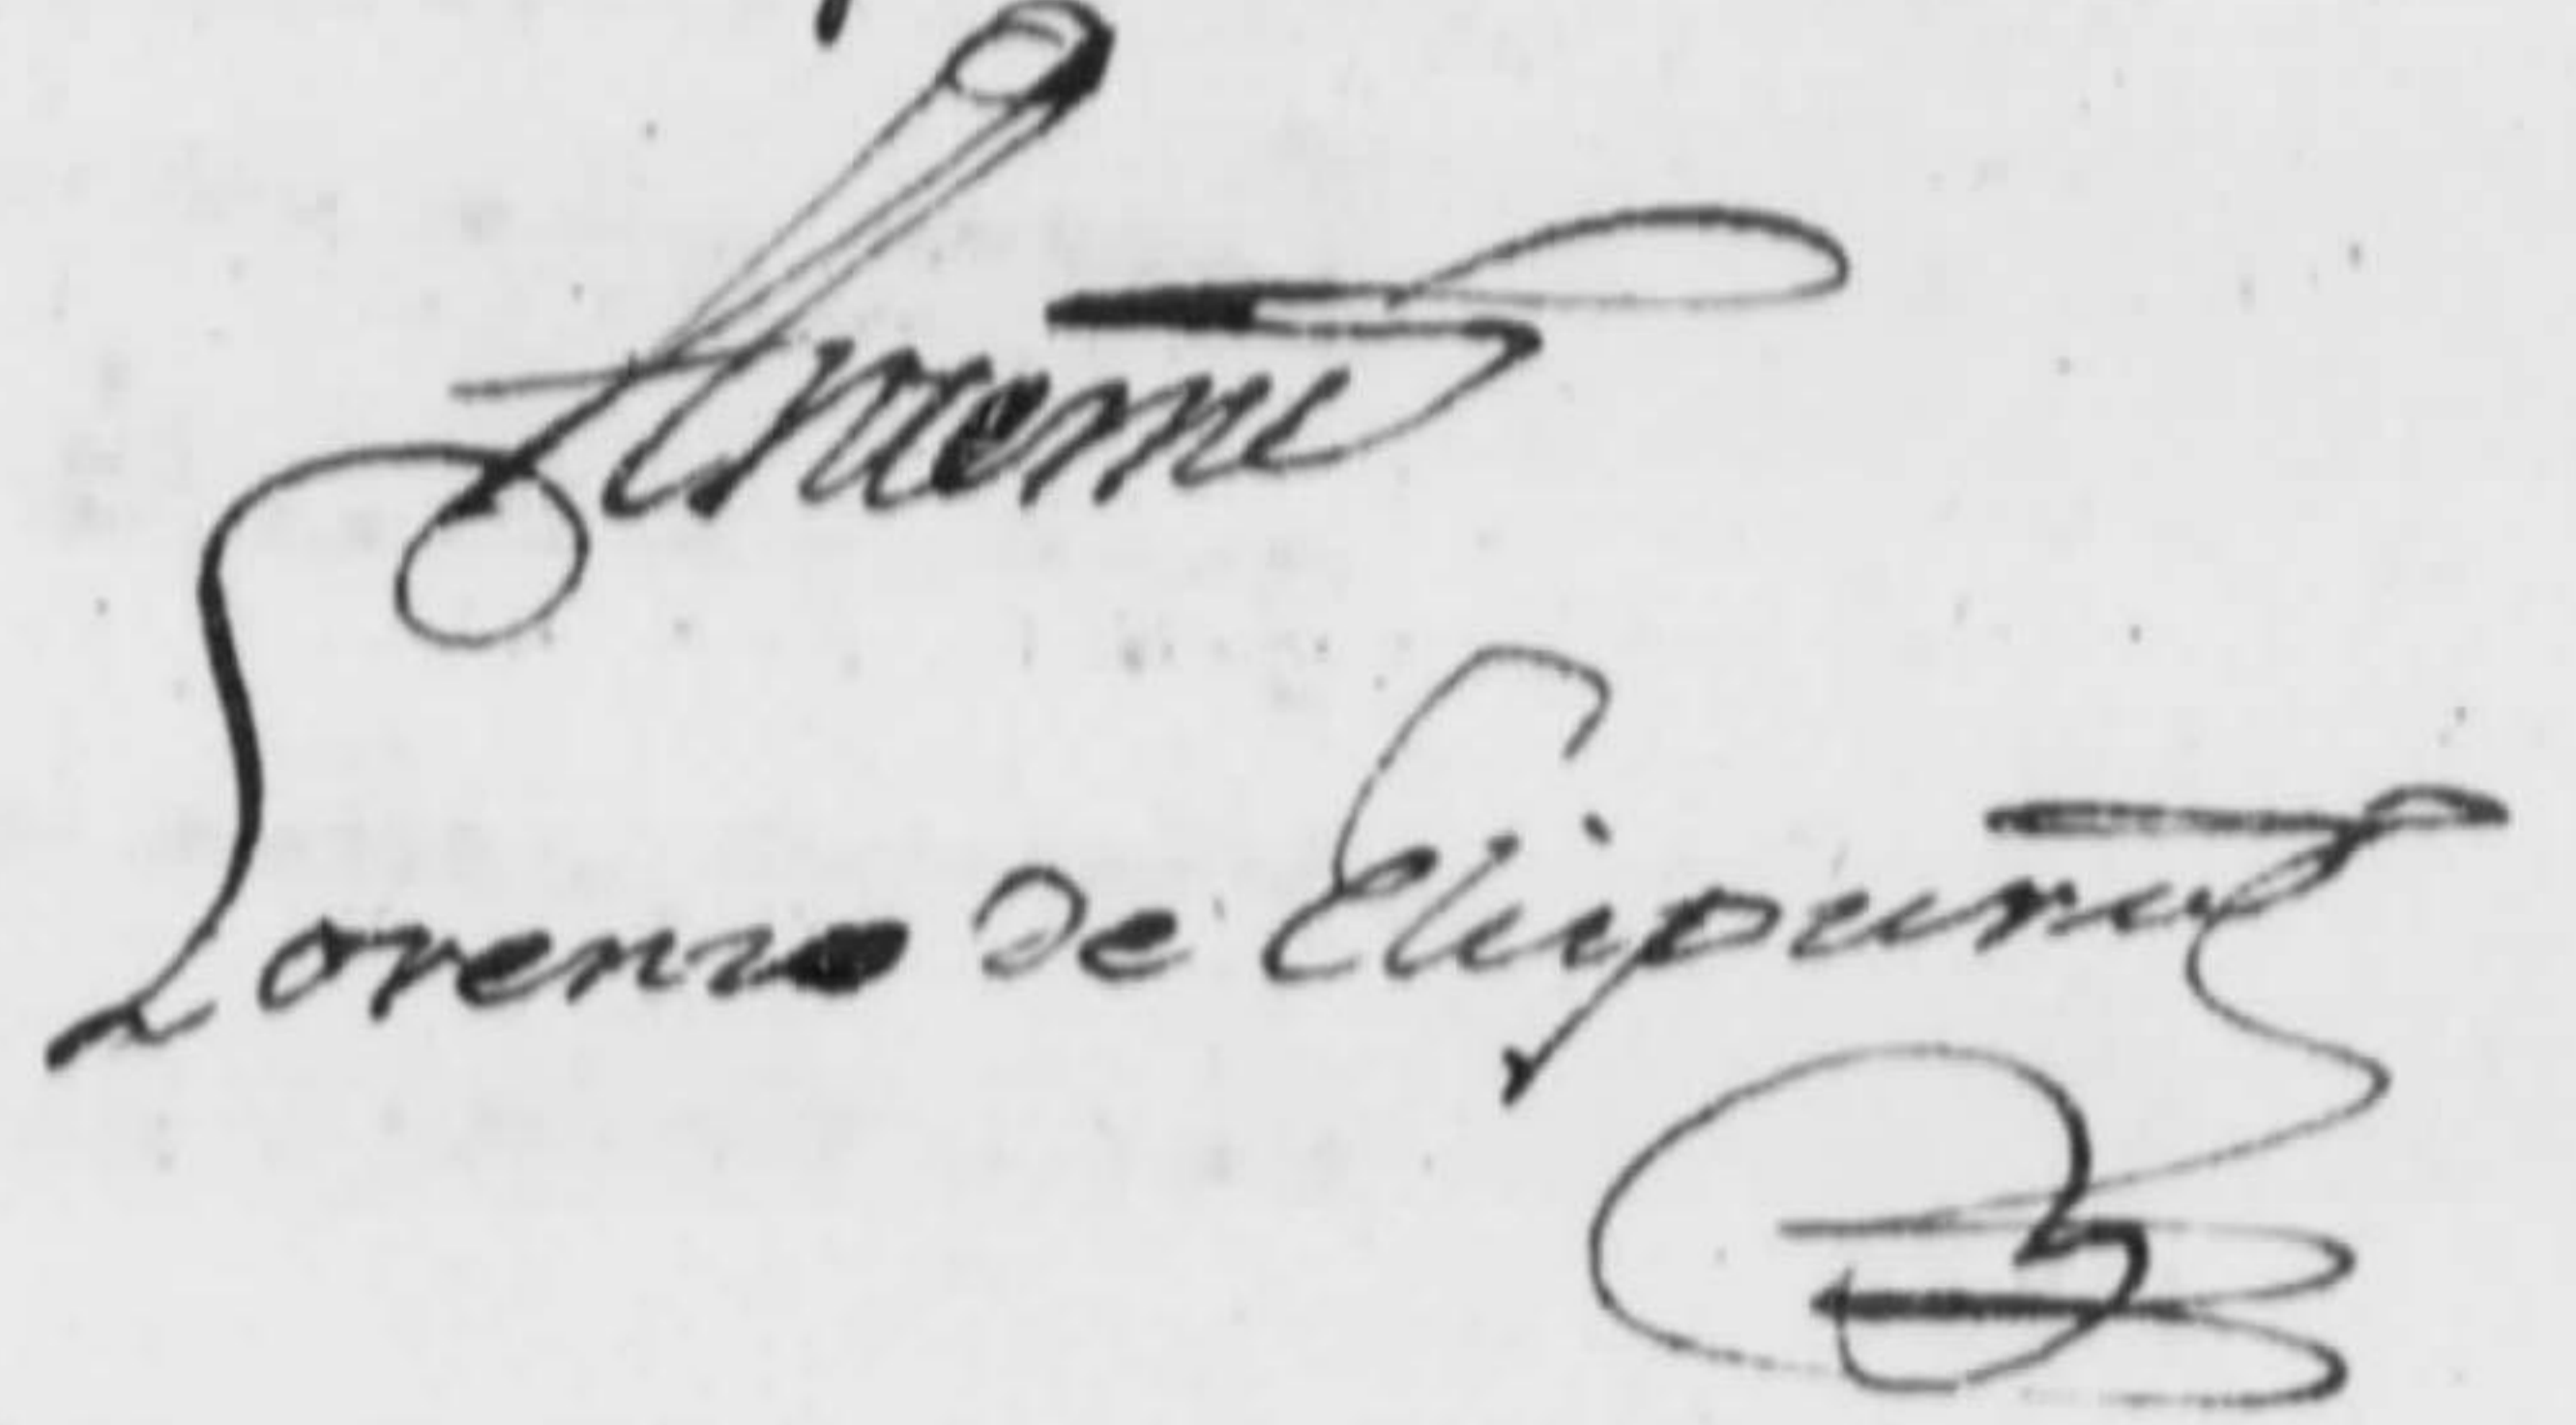 Ante mi
Lorenzo de Elipuru